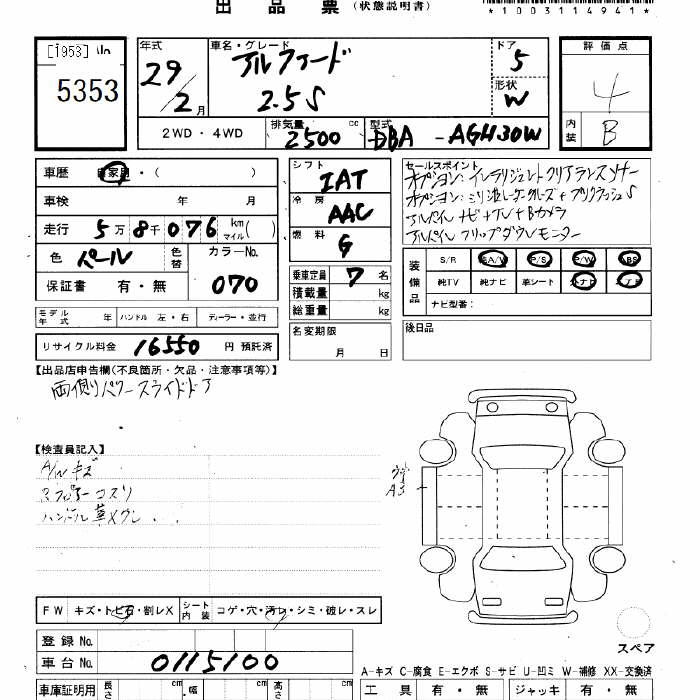 出品票 (状態説明書)
*1003114941*
[1953] 5353
年式 29/2月
車名・グレード アルファード 2.5S
ドア 5
形状 W
評価点 4
内装 B
2WD・4WD 排気量 2500 cc 型式 DBA - AGH30W
車歴 自家用・( )
車検 年 月
走行 5万8千076 km マイル( )
色 パール 色替 カラーNo. 070
保証書 有・無
シフト IAT
冷房 AAC
燃料 G
乗車定員 7名
積載量 kg
総重量 kg
セールスポイント
オプション:インテリジェントクリアランスソナー
オプション:ミリ波レーダークルーズ+プリクラッシュS
アルパインナビ+TV+Bカメラ
アルパインフリップダウンモニター
装備品 S/R SA/W P/S P/W ABS
純TV 純ナビ 革シート 外ナビ エアB
ナビ型番:
モデル年式 年 ハンドル 左・右 ディーラー・並行
名変期限 月 日
後日品
リサイクル料金 16550 円 預託済
【出品店申告欄(不良箇所・欠品・注意事項等)】
両側パワースライドドア
【検査員記入】
A/Wキズ
マフラーコスリ
ハンドル革メクレ
A3
FW キズ・トビ石・割レX シート内装 コゲ・穴・汚レ・シミ・破レ・スレ
スペア
登録No.
車台No. 0115100
A-キズ C-腐食 E-エクボ S-サビ U-凹ミ W-補修 XX-交換済
車庫証明用 長さ cm 幅 cm 高さ cm 工具 有・無 ジャッキ 有・無